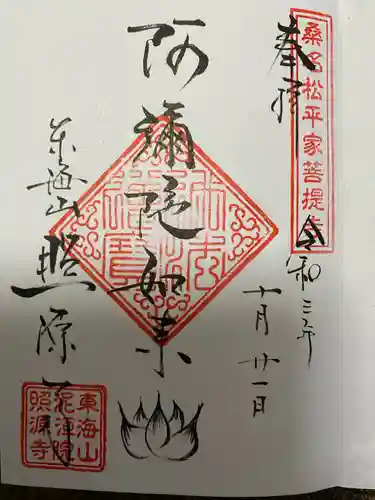 奉拝
桑名松平家菩提寺
令和三年
十月廿一日
阿彌陀如来
東海山
照源寺
東海山
泥洹院
照源寺